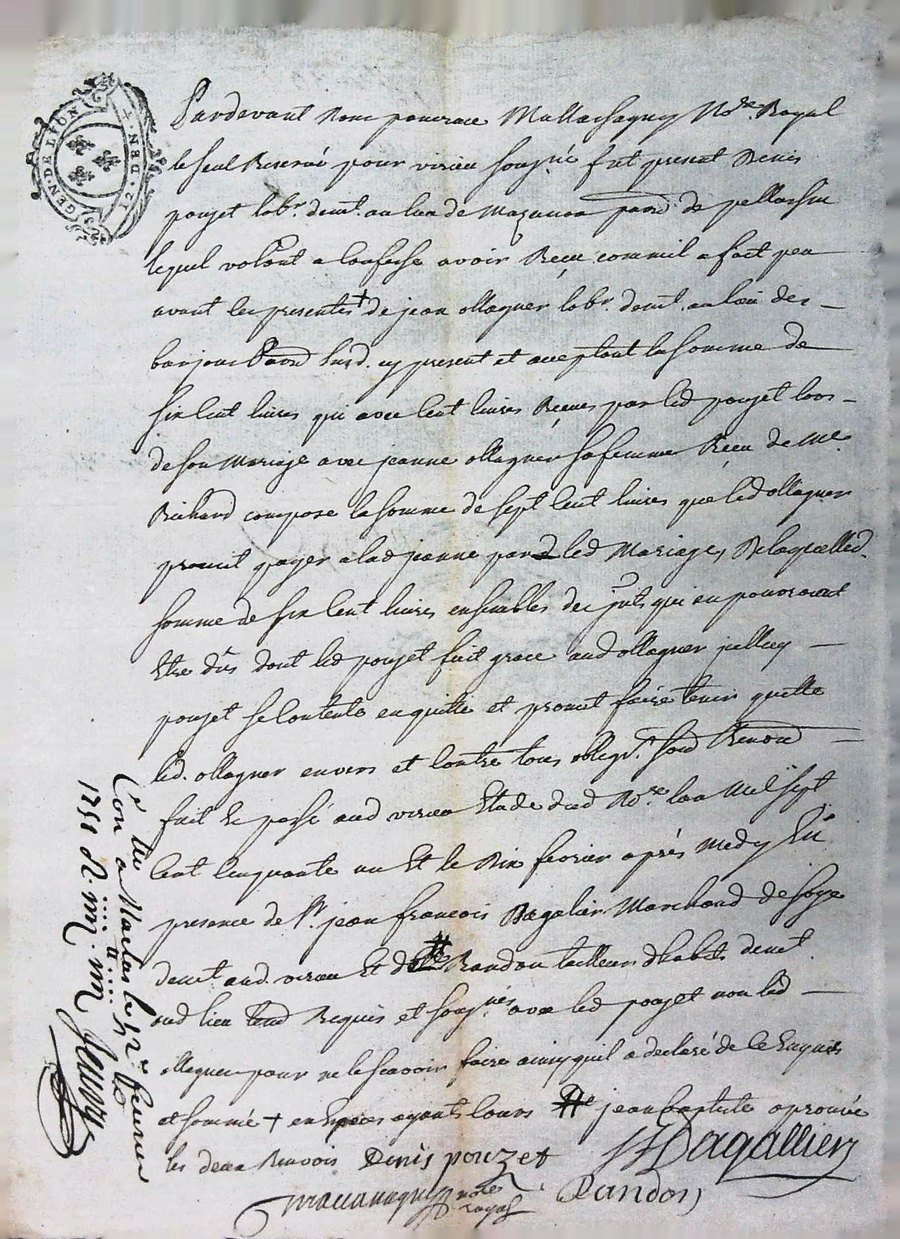 GEN. DE LION
12. DEN. +
Pardevant Nous pancrace Mallassagny No.re Royal
le seul Reservé pour virieu sousné fut present Denis
pouzet labr. demt. au lieu de Mazanon parr. de pellassin
lequel volont. a confesse avoir Receu comme il a fait peu
avant les presentes + de jean ollagner labr. demt. au lieu des
parr. susd. cy present et acceptant la somme de
six cent livres qui avec cent livres Receues par led pouzet lors
de son Mariage avec jeanne ollagner sa femme Receu de Me
Richard compose la somme de sept cent livres que led ollagner
promit payer a lad jeanne par led Mariage, De laquelle d.
somme de six cent livres ensembles des jnts. qui en pouvroient
Etre dûs dont led pouzet fait grace aud ollagner jcelluy
pouzet se contente en quitte et promet faire tenir quitte
led. ollagner envers et contre tous obligns. soud Renond
fait et passé aud virieu Etude dud No.re l'an Mil sept
cent cinquante un Et le Dix fevrier aprés Medy En
presence de Sr. jean francois Dagalier Marchand de soye
demt aud virieu Et de # Dandon tailleur d'habits demt
aud lieu tem. Requis et sousnés avec led pouzet non led
ollagner pour ne le scavoir faire ainsy quil a declaré de ce Enquis
et sommé + en Especes ayants cours # jean baptiste aprouvée
les deux Renvois Denis pouzet JF Dagallier
Mallassagny notre royal Dandon
Con a Maclas le 12e feurier
1751 R.